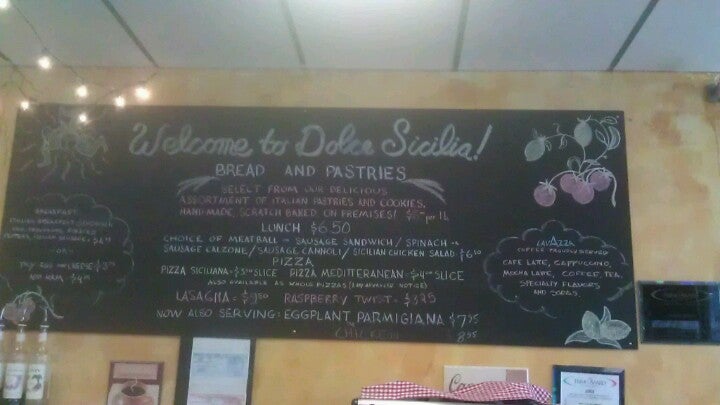 Welcome to Dolce Sicilia!
BREAD AND PASTRIES
SELECT FROM OUR DELICIOUS
ASSORTMENT OF ITALIAN PASTRIES AND COOKIES,
HAND-MADE, SCRATCH BAKED ON PREMISES! per Lb
LUNCH $6.50
CHOICE OF MEATBALL - SAUSAGE SANDWICH / SPINACH -
SAUSAGE CALZONE / SAUSAGE CANNOLI / SICILIAN CHICKEN SALAD $6.50
PIZZA
PIZZA SICILIANA = SLICE PIZZA MEDITERRANEAN SLICE
ALSO AVAILABLE AS WHOLE PIZZAS
LASAGNA = RASPBERRY TWIST = $3.25
NOW ALSO SERVING: EGGPLANT PARMIGIANA $7.95
CHICKEN 8.95
BREAKFAST
OR
LAVAZZA
COFFEE PROUDLY SERVED
CAFE LATE, CAPPUCCINO,
MOCHA LATE, COFFEE, TEA,
SPECIALTY FLAVORS
AND SODAS.